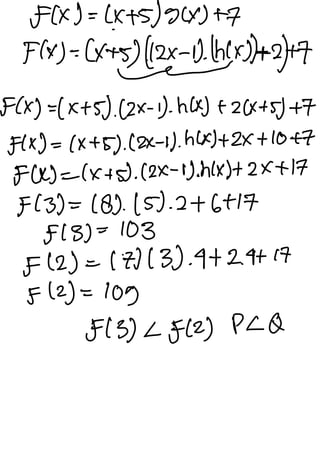 F(x) = (x+5) g(x) +7
F(x) = (x+5)((2x-1).(h(x))+2)+7
F(x) = (x+5).(2x-1).h(x) + 2(x+5)+7
F(x) = (x+5).(2x-1).h(x)+2x+10+7
F(x) = (x+5).(2x-1).h(x)+2x+17
F(3) = (8).(5).2+6+17
F(3) = 103
F(2) = (7)(3).4+24+17
F(2) = 109
F(3) < F(2) P<Q